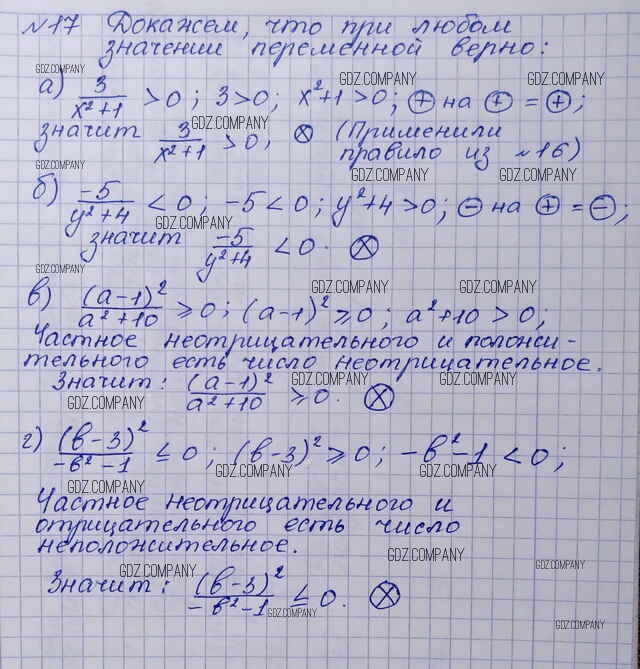 №17 Докажем, что при любом
значении переменной верно:
GDZ.COMPANY GDZ.COMPANY GDZ.COMPANY
а) 3/(x²+1) > 0; 3>0; x²+1>0; ⊕ на ⊕ = ⊕;
GDZ.COMPANY
значит 3/(x²+1) > 0, ⊗ (Применили
правило из №16)
GDZ.COMPANY GDZ.COMPANY GDZ.COMPANY
б) -5/(y²+4) < 0; -5<0; y²+4>0; ⊖ на ⊕ = ⊖;
GDZ.COMPANY
значит -5/(y²+4) < 0. ⊗
GDZ.COMPANY
в) (a-1)²/(a²+10) ≥ 0; (a-1)² ≥ 0; a²+10 > 0;
GDZ.COMPANY GDZ.COMPANY
Частное неотрицательного и положи-
тельного есть число неотрицательное.
Значит: (a-1)²/(a²+10) ≥ 0. ⊗
GDZ.COMPANY GDZ.COMPANY
GDZ.COMPANY
г) (в-3)²/(-в²-1) ≤ 0; (в-3)² ≥ 0; -в²-1 < 0;
GDZ.COMPANY GDZ.COMPANY
GDZ.COMPANY
Частное неотрицательного и
отрицательного есть число
неположительное.
GDZ.COMPANY
GDZ.COMPANY GDZ.COMPANY
Значит: (в-3)²/(-в²-1) ≤ 0. ⊗
GDZ.COMPANY
GDZ.COMPANY